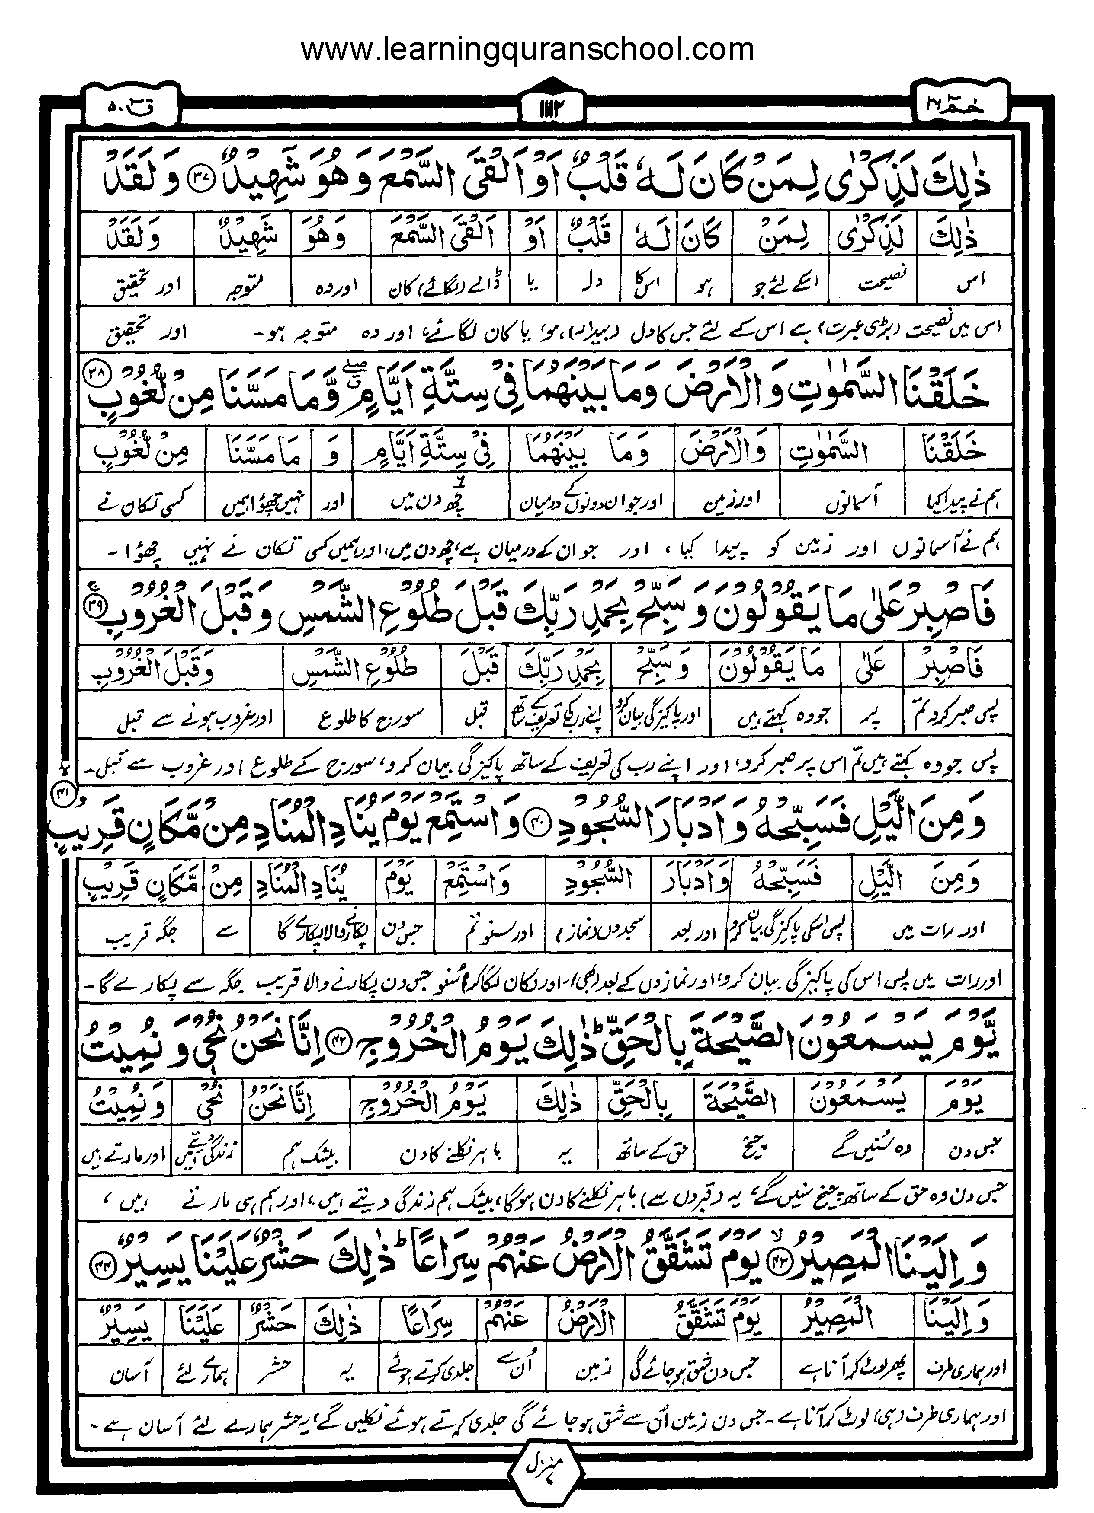 www.learningquranschool.com
حٰمٓ ٢٦ ١٧٢ قٓ ٥٠
ذٰلِكَ لَذِكْرٰى لِمَنْ كَانَ لَهٗ قَلْبٌ اَوْ اَلْقَى السَّمْعَ وَهُوَ شَهِيْدٌ ﴿٣٧﴾ وَلَقَدْ
ذٰلِكَ لَذِكْرٰى لِمَنْ كَانَ لَهٗ قَلْبٌ اَوْ اَلْقَى السَّمْعَ وَهُوَ شَهِيْدٌ وَلَقَدْ
اس نصیحت اسکے لئے جو ہو اس کا دل یا ڈالے (لگائے) کان اور وہ متوجہ اور تحقیق
اس میں نصیحت (بڑی عبرت) ہے اس کے لئے جس کا دل (بیدار) ہو، یا کان لگائے، اور وہ متوجہ ہو۔ اور تحقیق
خَلَقْنَا السَّمٰوٰتِ وَالْاَرْضَ وَمَا بَيْنَهُمَا فِيْ سِتَّةِ اَيَّامٍ وَّمَا مَسَّنَا مِنْ لُّغُوْبٍ ﴿٣٨﴾
خَلَقْنَا السَّمٰوٰتِ وَالْاَرْضَ وَمَا بَيْنَهُمَا فِيْ سِتَّةِ اَيَّامٍ وَ مَا مَسَّنَا مِنْ لُّغُوْبٍ
ہم نے پیدا کیا آسمانوں اور زمین اور جو ان دونوں کے درمیان چھ دن میں اور نہیں چھوا ہمیں کسی تکان نے
ہم نے آسمانوں اور زمین کو پیدا کیا، اور جو ان کے درمیان ہے، چھ دن میں، اور ہمیں کسی تکان نے نہیں چھوا۔
فَاصْبِرْ عَلٰى مَا يَقُوْلُوْنَ وَسَبِّحْ بِحَمْدِ رَبِّكَ قَبْلَ طُلُوْعِ الشَّمْسِ وَقَبْلَ الْغُرُوْبِ ﴿٣٩﴾
فَاصْبِرْ عَلٰى مَا يَقُوْلُوْنَ وَسَبِّحْ بِحَمْدِ رَبِّكَ قَبْلَ طُلُوْعِ الشَّمْسِ وَقَبْلَ الْغُرُوْبِ
پس صبر کرو تم پر جو وہ کہتے ہیں اور پاکیزگی بیان کرو اپنے رب کی تعریف کے ساتھ قبل سورج کا طلوع اور غروب ہونے سے قبل
پس جو وہ کہتے ہیں تم اس پر صبر کرو، اور اپنے رب کی تعریف کے ساتھ پاکیزگی بیان کرو، سورج کے طلوع اور غروب سے قبل۔
وَمِنَ الَّيْلِ فَسَبِّحْهُ وَاَدْبَارَ السُّجُوْدِ ﴿٤٠﴾ وَاسْتَمِعْ يَوْمَ يُنَادِ الْمُنَادِ مِنْ مَّكَانٍ قَرِيْبٍ ﴿٤١﴾
وَمِنَ الَّيْلِ فَسَبِّحْهُ وَاَدْبَارَ السُّجُوْدِ وَاسْتَمِعْ يَوْمَ يُنَادِ الْمُنَادِ مِنْ مَّكَانٍ قَرِيْبٍ
اور رات میں پس اسکی پاکیزگی بیان کرو اور بعد سجدوں (نماز) اور سنو تم جس دن پکارنے والا پکارے گا سے جگہ قریب
اور رات میں پس اس کی پاکیزگی بیان کرو، اور نمازوں کے بعد (بھی)۔ اور کان لگا کر سنو جس دن پکارنے والا قریب جگہ سے پکارے گا۔
يَّوْمَ يَسْمَعُوْنَ الصَّيْحَةَ بِالْحَقِّ ؕ ذٰلِكَ يَوْمُ الْخُرُوْجِ ﴿٤٢﴾ اِنَّا نَحْنُ نُحْيٖ وَنُمِيْتُ
يَوْمَ يَسْمَعُوْنَ الصَّيْحَةَ بِالْحَقِّ ذٰلِكَ يَوْمُ الْخُرُوْجِ اِنَّا نَحْنُ نُحْيٖ وَنُمِيْتُ
جس دن وہ سنیں گے چیخ حق کے ساتھ یہ باہر نکلنے کا دن بیشک ہم زندگی دیتے ہیں اور مارتے ہیں
جس دن وہ حق کے ساتھ چیخ سنیں گے، یہ (قبروں سے) باہر نکلنے کا دن ہوگا، بیشک ہم زندگی دیتے ہیں، اور ہم ہی مارتے ہیں،
وَاِلَيْنَا الْمَصِيْرُ ﴿٤٣﴾ يَوْمَ تَشَقَّقُ الْاَرْضُ عَنْهُمْ سِرَاعًا ؕ ذٰلِكَ حَشْرٌ عَلَيْنَا يَسِيْرٌ ﴿٤٤﴾
وَاِلَيْنَا الْمَصِيْرُ يَوْمَ تَشَقَّقُ الْاَرْضُ عَنْهُمْ سِرَاعًا ذٰلِكَ حَشْرٌ عَلَيْنَا يَسِيْرٌ
اور ہماری طرف پھر لوٹ کر آنا ہے جس دن شق ہو جائے گی زمین اُن سے جلدی کرتے ہوئے یہ حشر ہمارے لئے آسان
اور ہماری طرف (ہی) لوٹ کر آنا ہے۔ جس دن زمین اُن سے شق ہو جائے گی جلدی کرتے ہوئے نکلیں گے، یہ حشر ہمارے لئے آسان ہے۔
منزل